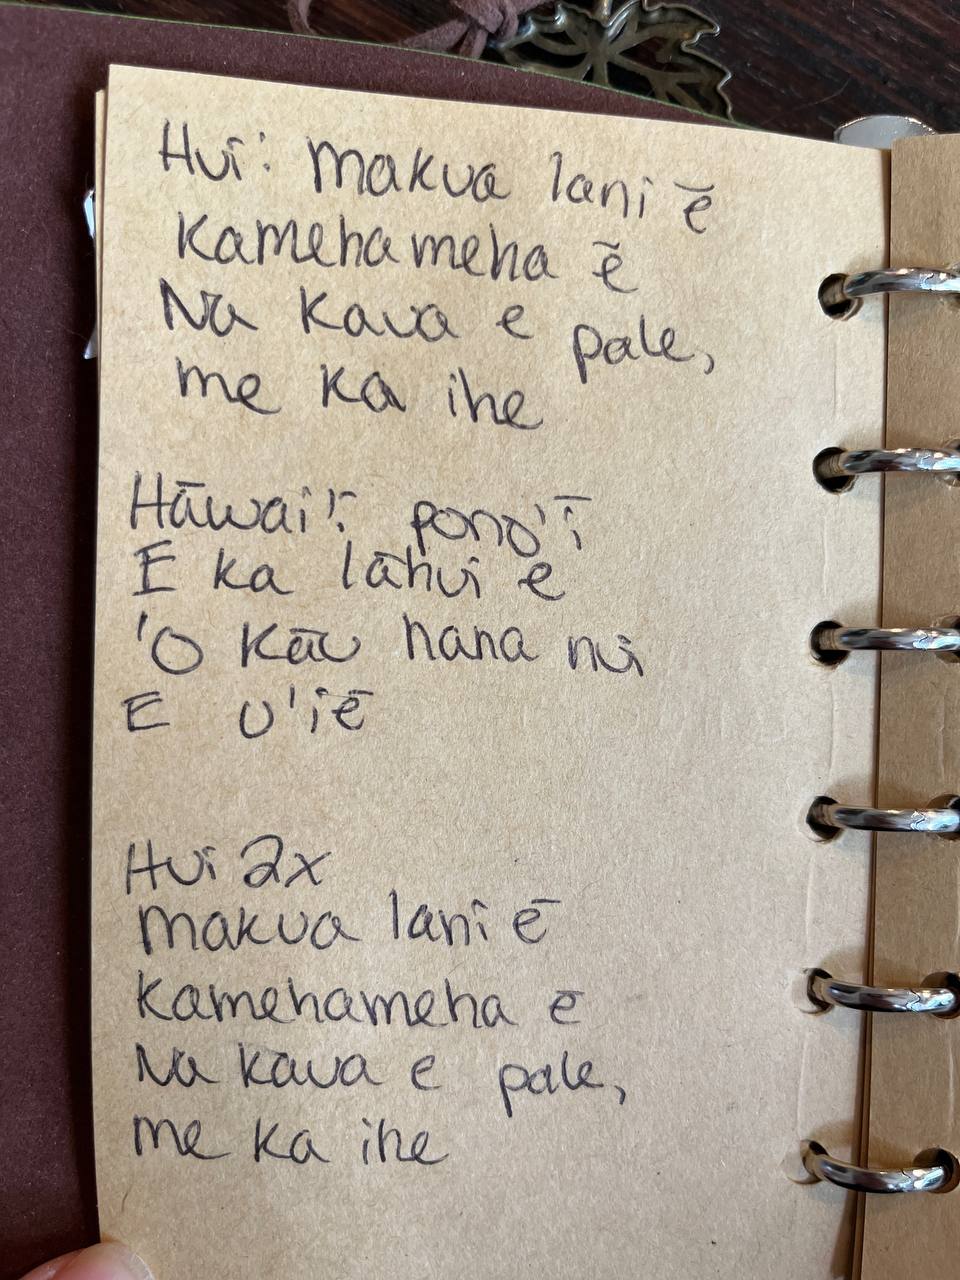 Hui: Makua lani ē
Kamehameha ē
Na Kaua e pale,
me Ka ihe
Hāwai'ī pono'ī
E ka lāhui e
'O Kāu hana nui
E u'iē
Hui 2x
Makua lani ē
Kamehameha ē
Na kāua e pale,
me ka ihe